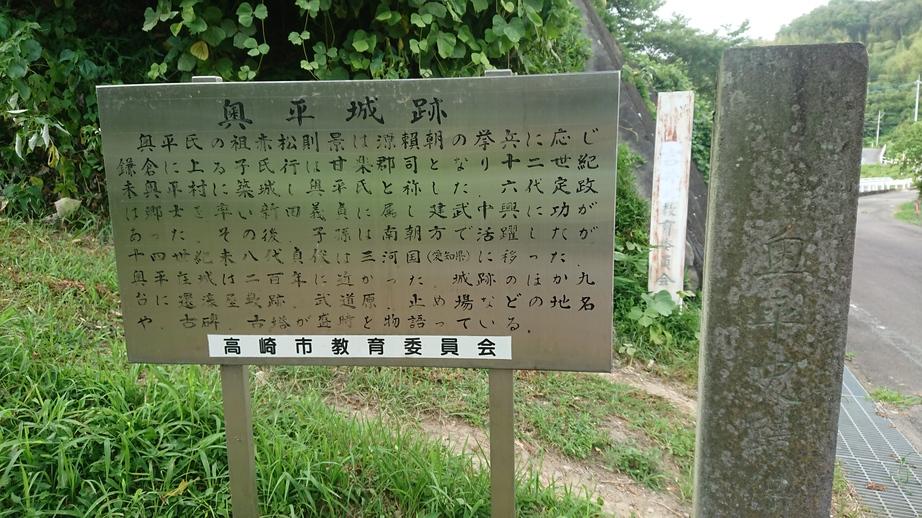 奥平城跡
奥平氏の祖赤松則景は源頼朝の挙兵に応じ
鎌倉に上る子氏行は甘楽郡司となり十二世紀
末奥平村に築城し奥平氏と称した。六代定政
は郷士を率い新田義貞に属し建武中興に功が
あった。その後、子孫は南朝方で活躍したが
十四世紀末八代貞俊は三河国(愛知県)に移った。
奥平在城は二百年に近かった。城跡のほか九
台に 屋敷跡、武道原、止め場などの地名
や、古碑、古塔が盛時を物語っている。
高崎市教育委員会
教育委員会
奥平城跡